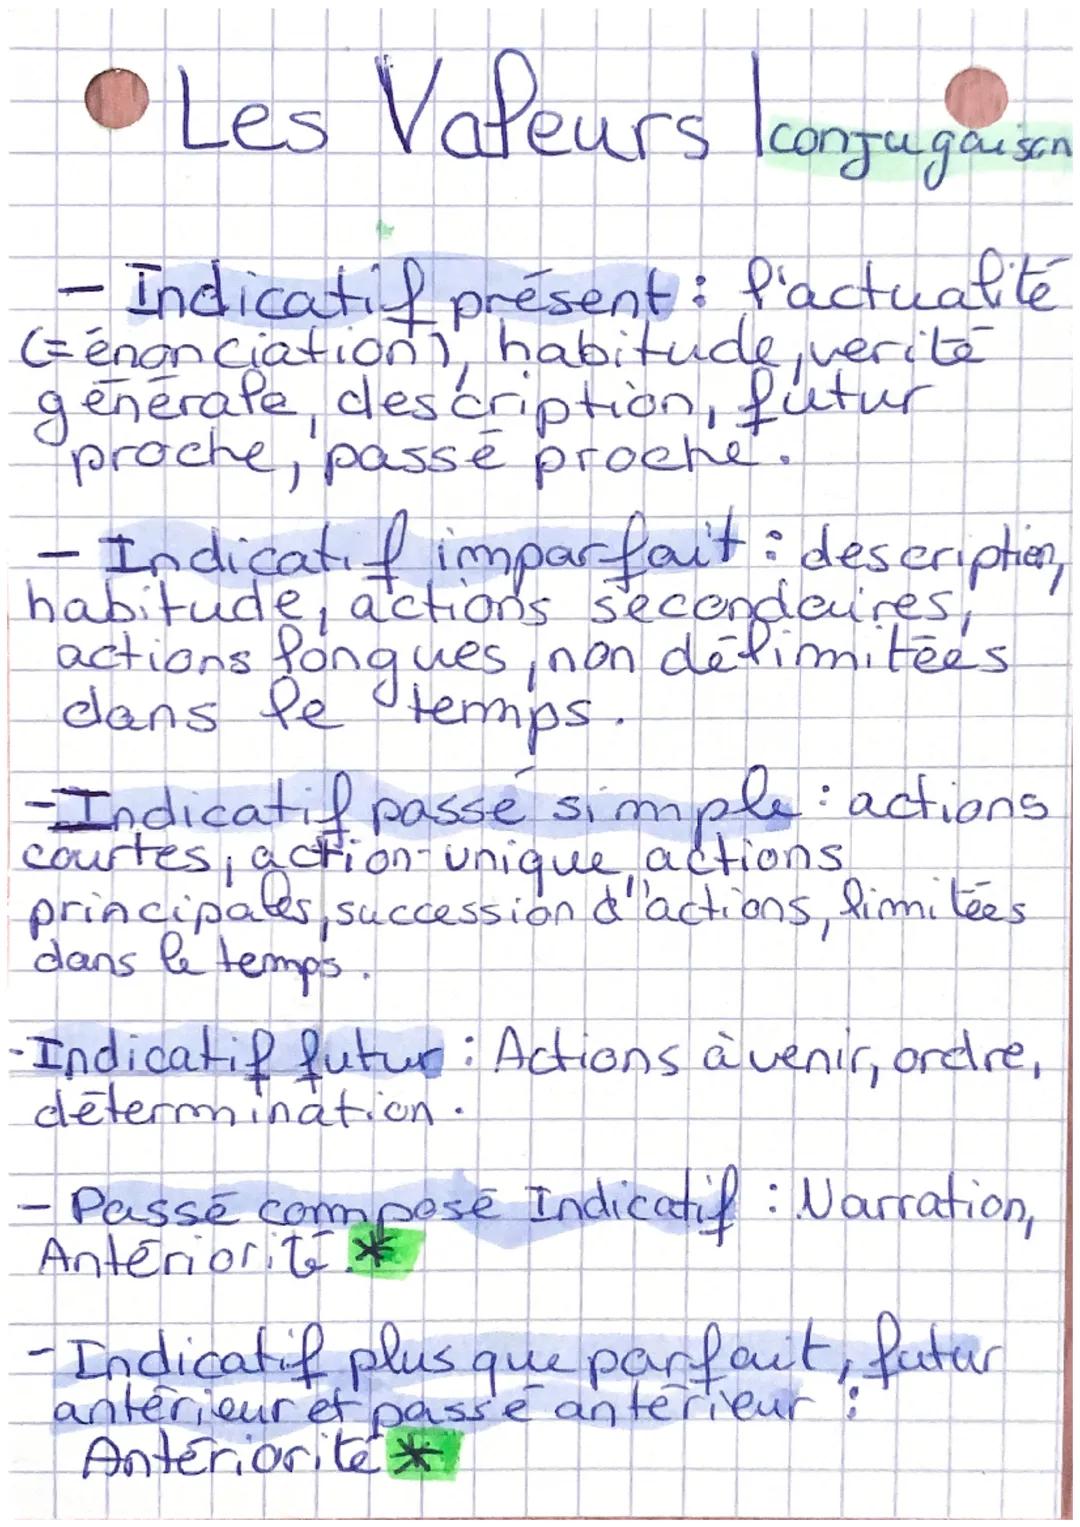 Les Valeurs | conjugaison
- Indicatif présent : l'actualité
(= énonciation), habitude, verité
générale, description, futur
proche, passé proche.
- Indicatif imparfait : description,
habitude, actions secondaires,
actions longues, non délimitées
dans le temps.
- Indicatif passé simple : actions
courtes, action unique, actions
principales, succession d'actions, limitées
dans le temps.
- Indicatif futur : Actions à venir, ordre,
détermination.
- Passé composé Indicatif : Narration,
Antériorité. *
- Indicatif plus que parfait, futur
antérieur et passé antérieur :
Antériorité *